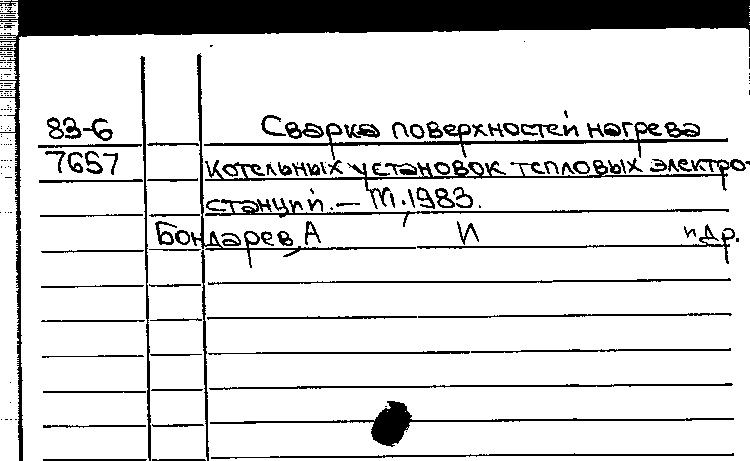 83-6 Сварка поверхностей нагрева
7657 котельных установок тепловых электро-
станций. — М, 1983.
Бондарев, А И и др.